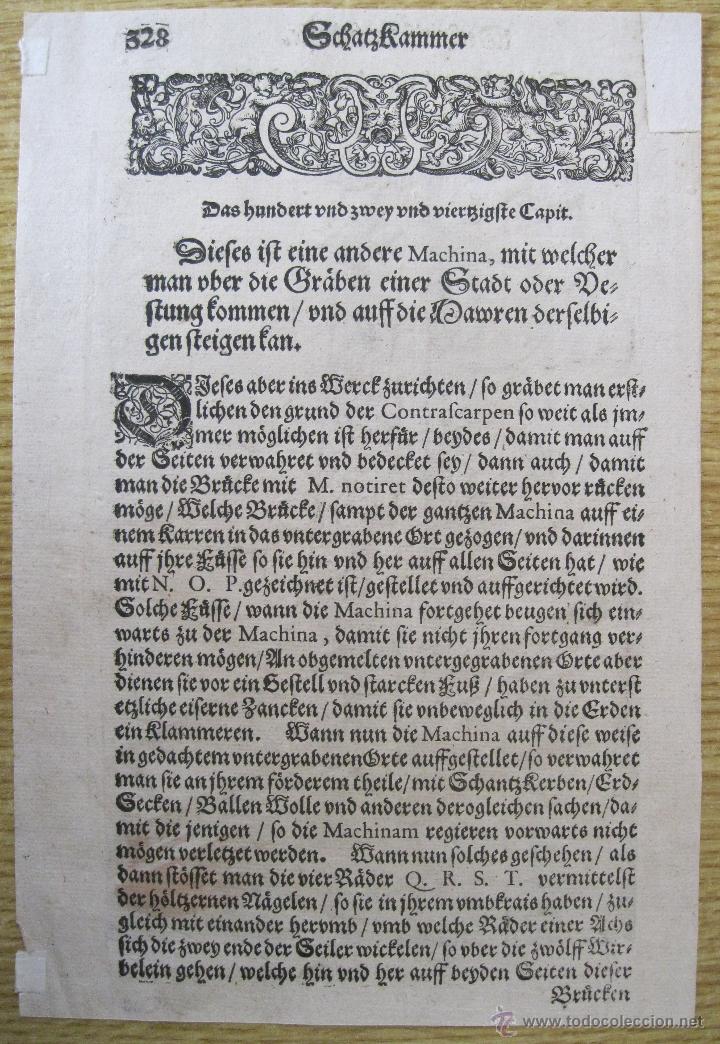 328 SchatzKammer
Das hundert vnd zwey vnd viertzigste Capit.
Dieses ist eine andere Machina, mit welcher
man vber die Gräben einer Stadt oder Ve-
stung kommen / vnd auff die Mawren derselbi-
gen steigen kan.
DIeses aber ins Werck zurichten / so gräbet man erst-
lichen den grund der Contrascarpen so weit als jm-
mer möglichen ist herfür / beydes / damit man auff
der Seiten verwahret vnd bedecket sey / dann auch / damit
man die Brücke mit M. notiret desto weiter hervor rücken
möge / Welche Brücke / sampt der gantzen Machina auff ei-
nem Karren in das vntergrabene Ort gezogen / vnd darinnen
auff jhre Füsse so sie hin vnd her auff allen Seiten hat / wie
mit N. O. P. gezeichnet ist / gestellet vnd auffgerichtet wird.
Solche Füsse / wann die Machina fortgehet beugen sich ein-
warts zu der Machina, damit sie nicht jhren fortgang ver-
hinderen mögen / An obgemelten vntergegrabenen Orte aber
dienen sie vor ein Gestell vnd starcken Fuß / haben zu vnterst
etzliche eiserne Zancken / damit sie vnbeweglich in die Erden
ein Klammeren. Wann nun die Machina auff diese weise
in gedachtem vntergrabenen Orte auffgestellet / so verwahret
man sie an jhrem förderem theile / mit SchantzKerben / Erd-
Secken / Ballen Wolle vnd anderen derogleichen sachen / da-
mit die jenigen / so die Machinam regieren vorwarts nicht
mögen verletzet werden. Wann nun solches geschehen / als
dann stösset man die vier Räder Q. R. S. T. vermittelst
der höltzernen Nägelen / so sie in jhrem vmbkrais haben / zu-
gleich mit einander hervmb / vmb welche Räder einer Achs
sich die zwey ende der Seiler wickelen / so vber die zwölff Wir-
belein gehen / welche hin vnd her auff beyden Seiten dieser
Brücken
© www.todocoleccion.net